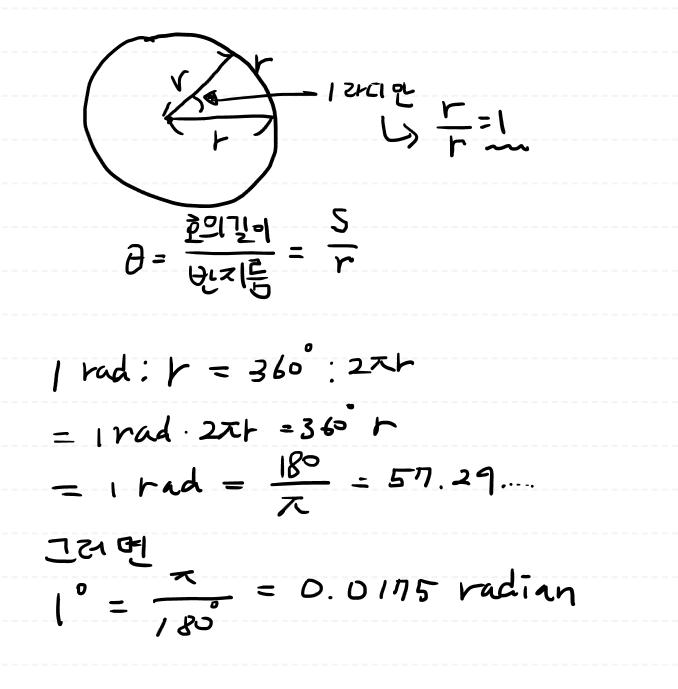 r r 1 라디안
r ↳ r/r = 1
θ = 호의길이/반지름 = S/r
1 rad : r = 360° : 2πr
= 1 rad · 2πr = 360° r
= 1 rad = 180/π = 57.29.....
그러면
1° = π/180° = 0.0175 radian